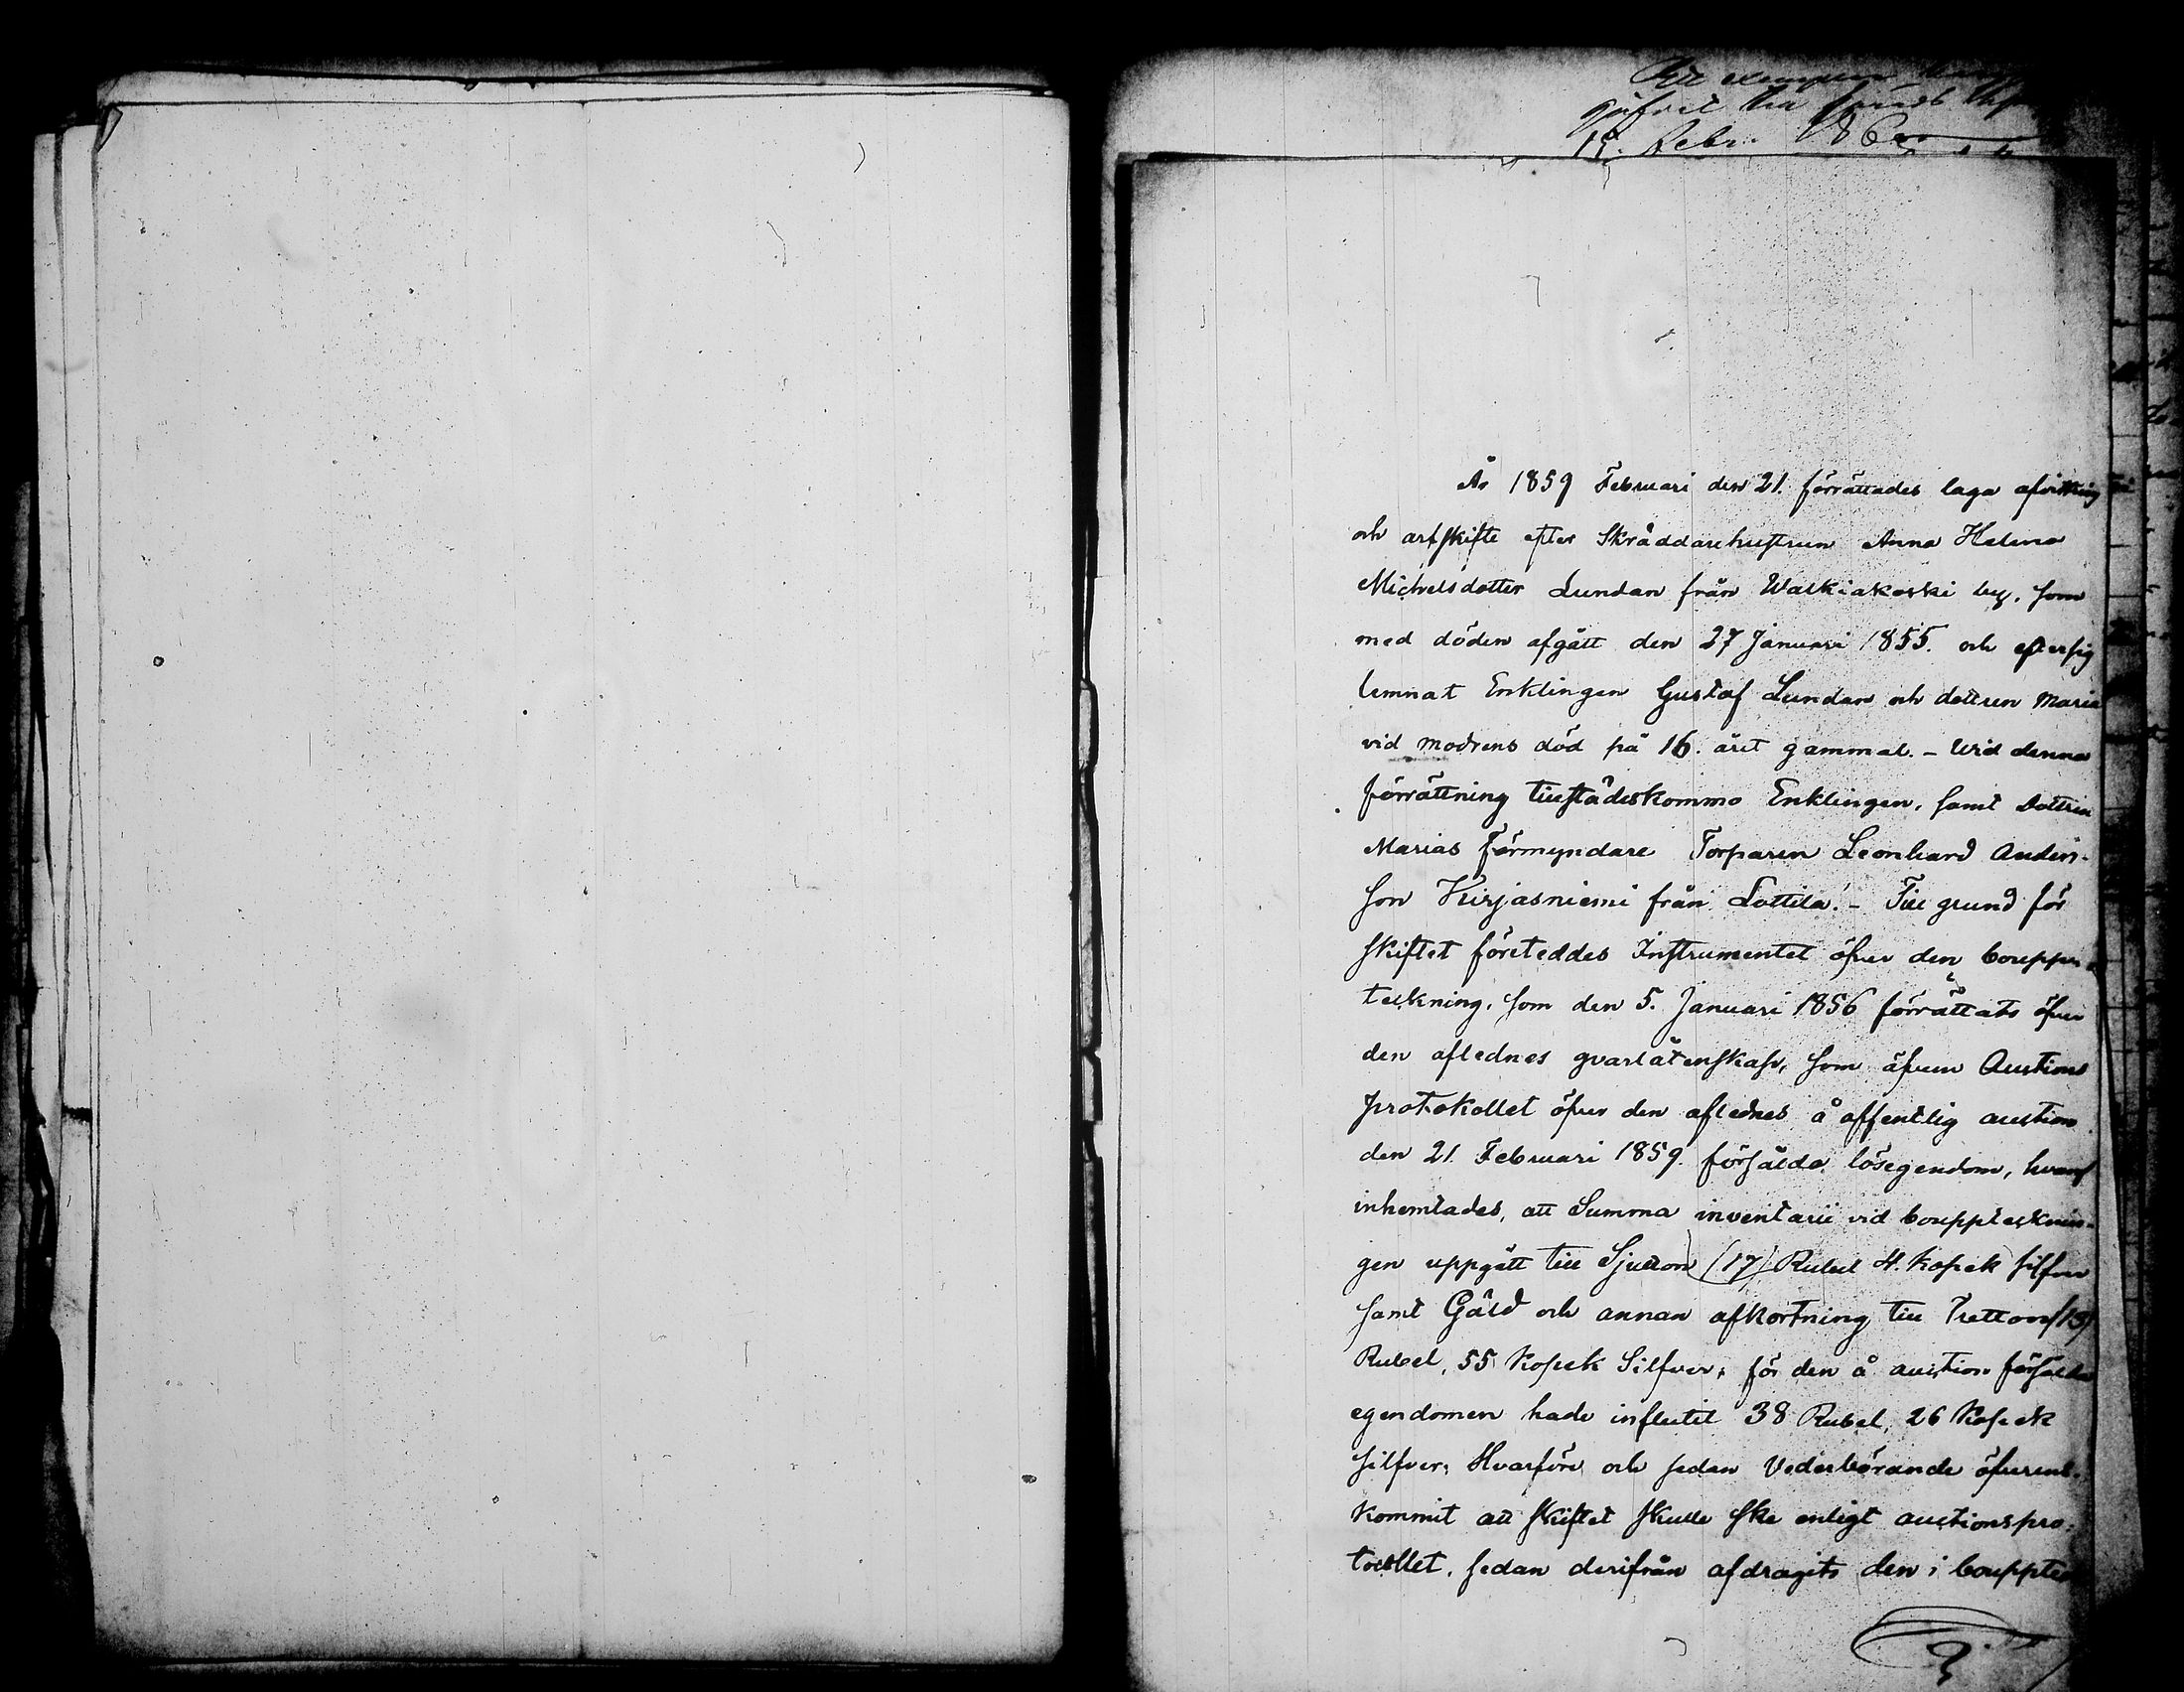 Ett exemplar
15. Febr. 186
År 1859 Februari den 21. förrättades laga afvittring
och arfskifte efter Skräddarehustrun Anna Helena
Michelsdotter Lundan från Walkiakoski by, som
med döden afgått den 27 Januari 1855. och efter sig
lemnat Enklingen Gustaf Lundan och dottren Maria
vid modrens död på 16. året gammal. - Wid denna
förrättning tillstädeskommo Enklingen, samt Dottren
Marias Förmyndare Torparen Leonhard Anders-
son Kirjasniemi från Lottila. - Till grund för
skiftet företeddes Instrumentet öfver den bouppe-
teckning, som den 5. Januari 1856 förrättats öfver
den aflednes qvarlåtenskap, som äfven Auctions
protokollet öfver den aflednes å offentlig auction
den 21. Februari 1859. försålda lösegendom, hvaraf
inhemtades, att Summa inventarii vid boupptecknin-
gen uppgått till Sjutton (17) Rubel 4. Kopek silfver
samt Gäld och annan afkortning till Tretton (13)
Rubel, 55 Kopek Silfver; för den å auction försålda
egendomen hade influtit 38 Rubel, 26 Kopek
silfver; Hvarföre och sedan Vederbörande öfverens-
kommit att skiftet skulle ske enligt auctionspro-
tocollet, sedan derifrån afdragits den i bouppteck